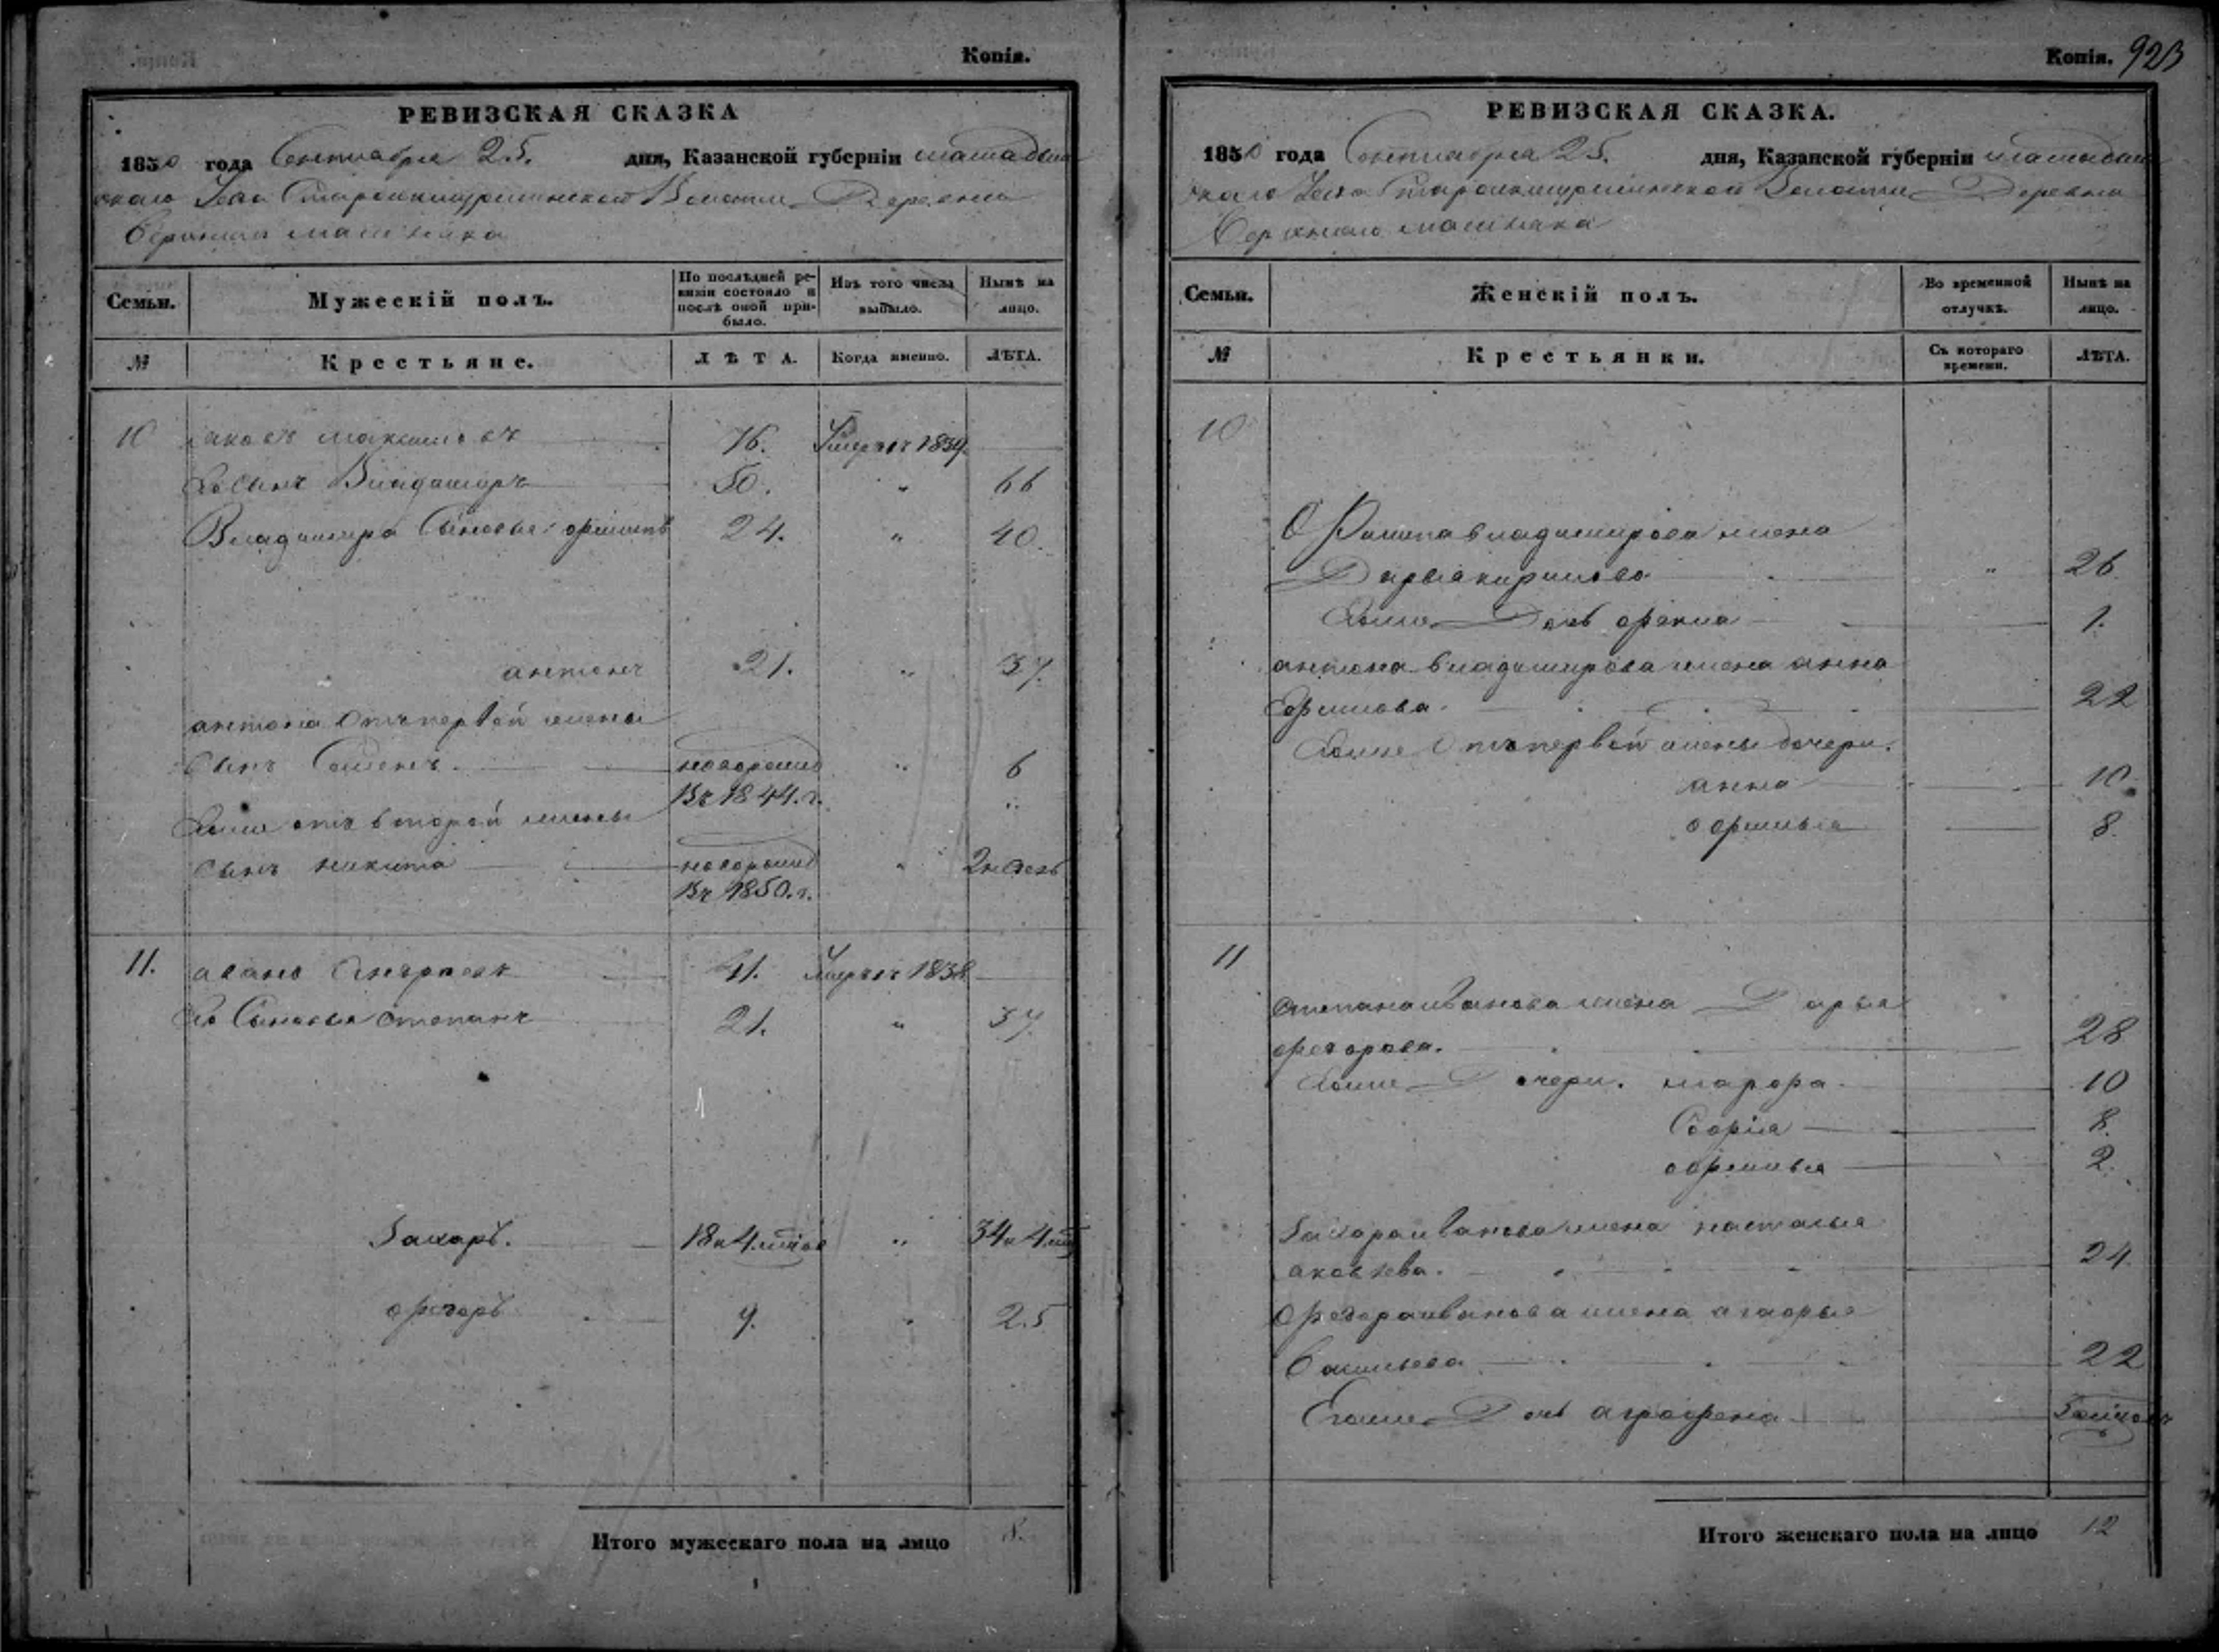 Копія.
РЕВИЗСКАЯ СКАЗКА
1850 года Сентября 25. дня, Казанской губерніи мамадыш
скаго Уезда Волости Деревни
Семьи.
Мужескій полъ.
По послѣдней ре-
визіи состояло и
послѣ оной при-
было.
Изъ того числа
выбыло.
Нынѣ на
лицо.
№
Крестьяне.
ЛѢТА.
Когда именно.
ЛѢТА.
10 яковъ максимовъ 76. Умеръ 1839.
Ево сынъ Владимиръ 50. " 66
Владимира Сыновья филипъ 24. " 40.
антонъ 21. " 37.
антона Отъ первой жены
сынъ Семенъ. новорожд " 6
Въ 1844. г.
Евоже отъ второй жены
сынъ никита новорожд " 2 недель
Въ 1850. г.
11. Андреевъ 41. Умеръ 1838
Ево Сыновья степанъ 21. " 37.
Захаръ. 18 и 4 " 34 и 4
федоръ 9. " 25
Итого мужескаго пола на лицо 8.
Копія. 923
РЕВИЗСКАЯ СКАЗКА.
1850 года Сентября 25. дня, Казанской губерніи мамадыш
скаго Уезда Волости Деревни
Семьи.
Женскій полъ.
Во временной
отлучкѣ.
Нынѣ на
лицо.
№
Крестьянки.
Съ котораго
времени.
ЛѢТА.
10
Филипа владимирова жена
Дарья кирилова " 26
Евоже Дочь 1.
антона владимирова жена анна
Ефимова. 22
Евоже Отъ первой жены дочери.
анна 10.
офимья 8.
11
степана иванова жена Дарья
федорова. 28
Евоже Дочери. марфа. 10
Софія 8.
офимья 2.
Захара иванова жена наталья
яковлева. 24
Федора иванова жена агафья
Васильева 22
Егоже Дочь аграфена
Итого женскаго пола на лицо 12